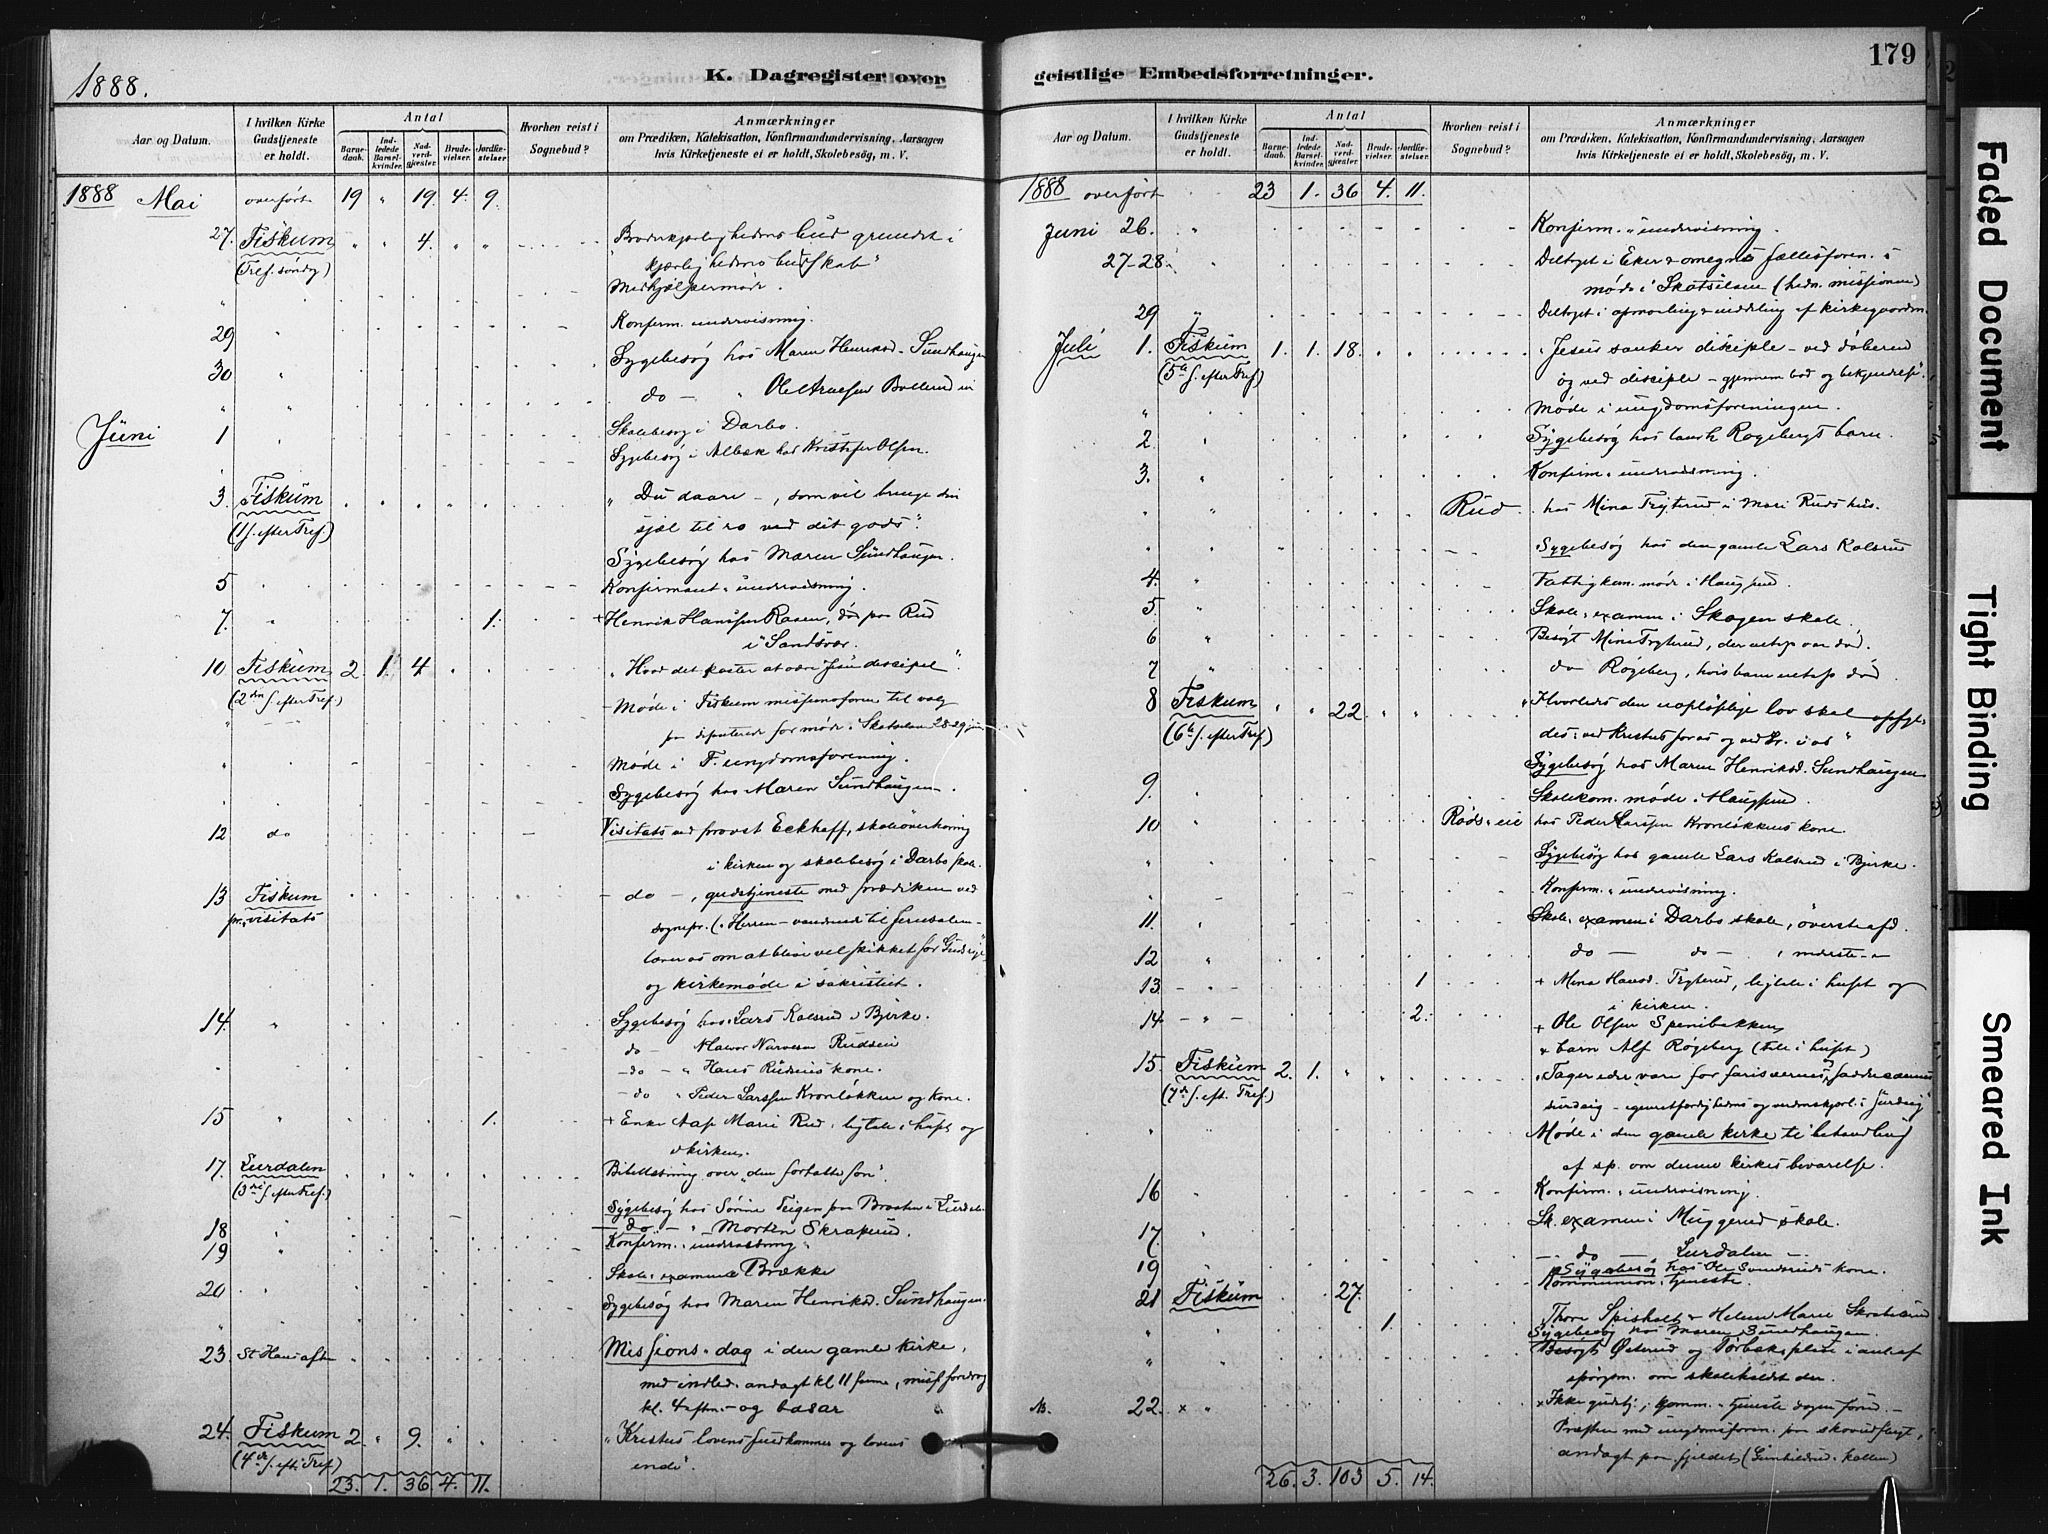 1888.
K. Dagregister over
Aar og Datum.
I hvilken Kirke Gudstjeneste er holdt.
Antal
Barnedaab.
Indledede Barselkvinder.
Nadverdgjæster.
Brudevielser.
Jordfæstelser
Hvorhen reist i Sognebud?
Anmærkninger
om Prædiken, Katekisation, Konfirmandundervisning, Aarsagen
hvis Kirketjeneste ei er holdt, Skolebesög, m. V.
1888 Mai overført 19 " 19. 4. 9.
27. Fiskum " " 4. " " Broderkjærlighedens bud grundet i
(Tref. søndg) kjærlighedens budskab"
" Medhjælpermøde.
29 " Konfirm. undervisning.
30 " Sygebesøg hos Maren Henriksd. Sundhaugen
" " do —
Juni 1 " Skolebesøg i Darbo.
Sygebesøg i Albæk hos Kristofer Olsen.
3. Fiskum " Du daare –, som vil bringe din
(1 s. efter Tref.) sjæl til ro ved dit gods".
Sygebesøg hos Maren Sundhaugen.
5 Konfirmant-undervisning.
7. " 1. + Henrik Hanssen Raaen, død paa Rud
i Sandsvær.
10 Fiskum 2. 1. 4 " Hvad det koster at være Jesu discipel".
(2den s. efter Tref.) Møde i Fiskum missionsforen. til valg
paa deputerede for møde i Skotselven 28-29 juni
" Møde i F. ungdomsforening.
Sygebesøg hos Maren Sundhaugen.
12 do Visitats ved provst Eckhoff, skoleoverhøring
i kirken og skolebesøg i Darbo skole.
13 Fiskum – do –, gudstjeneste med prædiken ved
pr. visitats sognepr. (" Herren – vandrende til Jerusalem –
lærer os om at blive vel skikket for Guds rige"
og kirkemøde i sakristiet.
14. " Sygebesøg hos Lars Kolsrud i Bjerke.
do – Halvor Narvesen Rudseie
– do – " Hans Rudseies kone.
– do " Peder Larssen Kronløkken og kone.
15 " 1. + Enke Marie Rud, ligtale i huset og
i kirken.
17. Lurdalen Bibellæsning over "den fortabte søn".
(3die s. efter Tref.)
Sygebesøg hos Sørine Teigen
18 — do — " Morten Skraperud
19 " Konfirm.-undervisning
20 Skole-examen i Brække
" Sygebesøg hos Maren Henriksd. Sundhaugen.
23. St Hans aft Missions-dag i den gamle kirke,
med indled. andagt kl 11 form., miss foredrag
kl. 4 eftm. – og basar
24. Fiskum 2. " 9. " " " Kristus lovens fuldkommer og lovens
(4de s. eft. Tref.) ende".
23. 1. 36 4. 11.
geistlige Embedsforretninger.
179
Aar og Datum.
I hvilken Kirke Gudstjeneste er holdt.
Antal
Barnedaab.
Indledede Barselkvinder.
Nadverdgjæster.
Brudevielser.
Jordfæstelser.
Hvorhen reist i Sognebud?
Anmærkninger
om Prædiken, Katekisation, Konfirmandundervisning, Aarsagen
hvis Kirketjeneste ei er holdt, Skolebesög, m. V.
1888 overført 23 1. 36 4. 11.
Juni 26. " Konfirm.-undervisning.
27-28. Deltaget i Eker & omegns fællesforen.s
møde i Skotselven (hedn. missionen)
29 " Deltaget i opmaaling & inddeling af kirkegaarden.
Juli 1. Fiskum 1. 1. 18. " Jesus sanker disciple – ved daaben
(5te s. efter Tref.) og ved disciple – gjennem bod og bekjendelse".
" Møde i ungdomsforeningen.
2. Sygebesøg hos Rogebergs barn.
3. " Konfirm.-undervisning.
" " Rud hos Mina Tryterud i Mari Ruds hus.
" Sygebesøg hos den gamle Lars Kolsrud
4. " Fattigkom. møde i Haugsund.
5. " Skole-examen i Skogen skole.
6 " Besøgt Mina Tryterud, der netop var død.
7 " do Rogeberg, hvis barn netop død
8 Fiskum " " 22. " " " Hvorledes den uopløselige lov skal opfyl-
(6te s. efter Tref.) des: ved Kristus for os og ved Kr. i os"
Sygebesøg hos Maren Henriksd. Sundhaugen
9. Skolekom. møde i Haugsund.
10 Røds-eie hos Peder Larssen Kronløkkens kone.
" Sygebesøg hos gamle Lars Kolsrud i Bjerke.
Konfirm.-undervisning.
11. " Skole-examen i Darbo skole, øverste afd.
12 " do — do — , nederste –"–
13. – " – 1 + Mina Hansd. Tryterud, ligtale i huset og
i kirken.
14 – " – 2. + Ole Olsen Spenibakken
+ barn Alf Rogeberg (tale i huset)
15. Fiskum 2. 1. " " " Tager eder vare for farisæernes & saddukæernes
(7de s. eft. Tref.) surdeig
" Møde i den gamle kirke til behandling
af sp. om denne kirkes bevarelse.
16 Konfirm.-undervisning.
17. Sk. examen i Muggerud skole.
19 — do — Lurdalen –.
Sygebesøg hos Ole kone.
21 Fiskum 27. Kommunion-tjeneste.
" " 1. Thore Spisholt & Helene Marie
Sygebesøg hos Maren Sundhaugen.
" " Besøgt Østerud og i anl. af
spørgsm. om skoleholdet der.
N. 22. × " × Ikke gudstj., komm.-tjeneste dagen forud. –
Præsten med ungdomsforen. paa skovudflugt,
andagt paa fjeldet (Gunhildrud-kollen)
26. 3. 103 5. 14.
Faded Document
Tight Binding
Smeared Ink